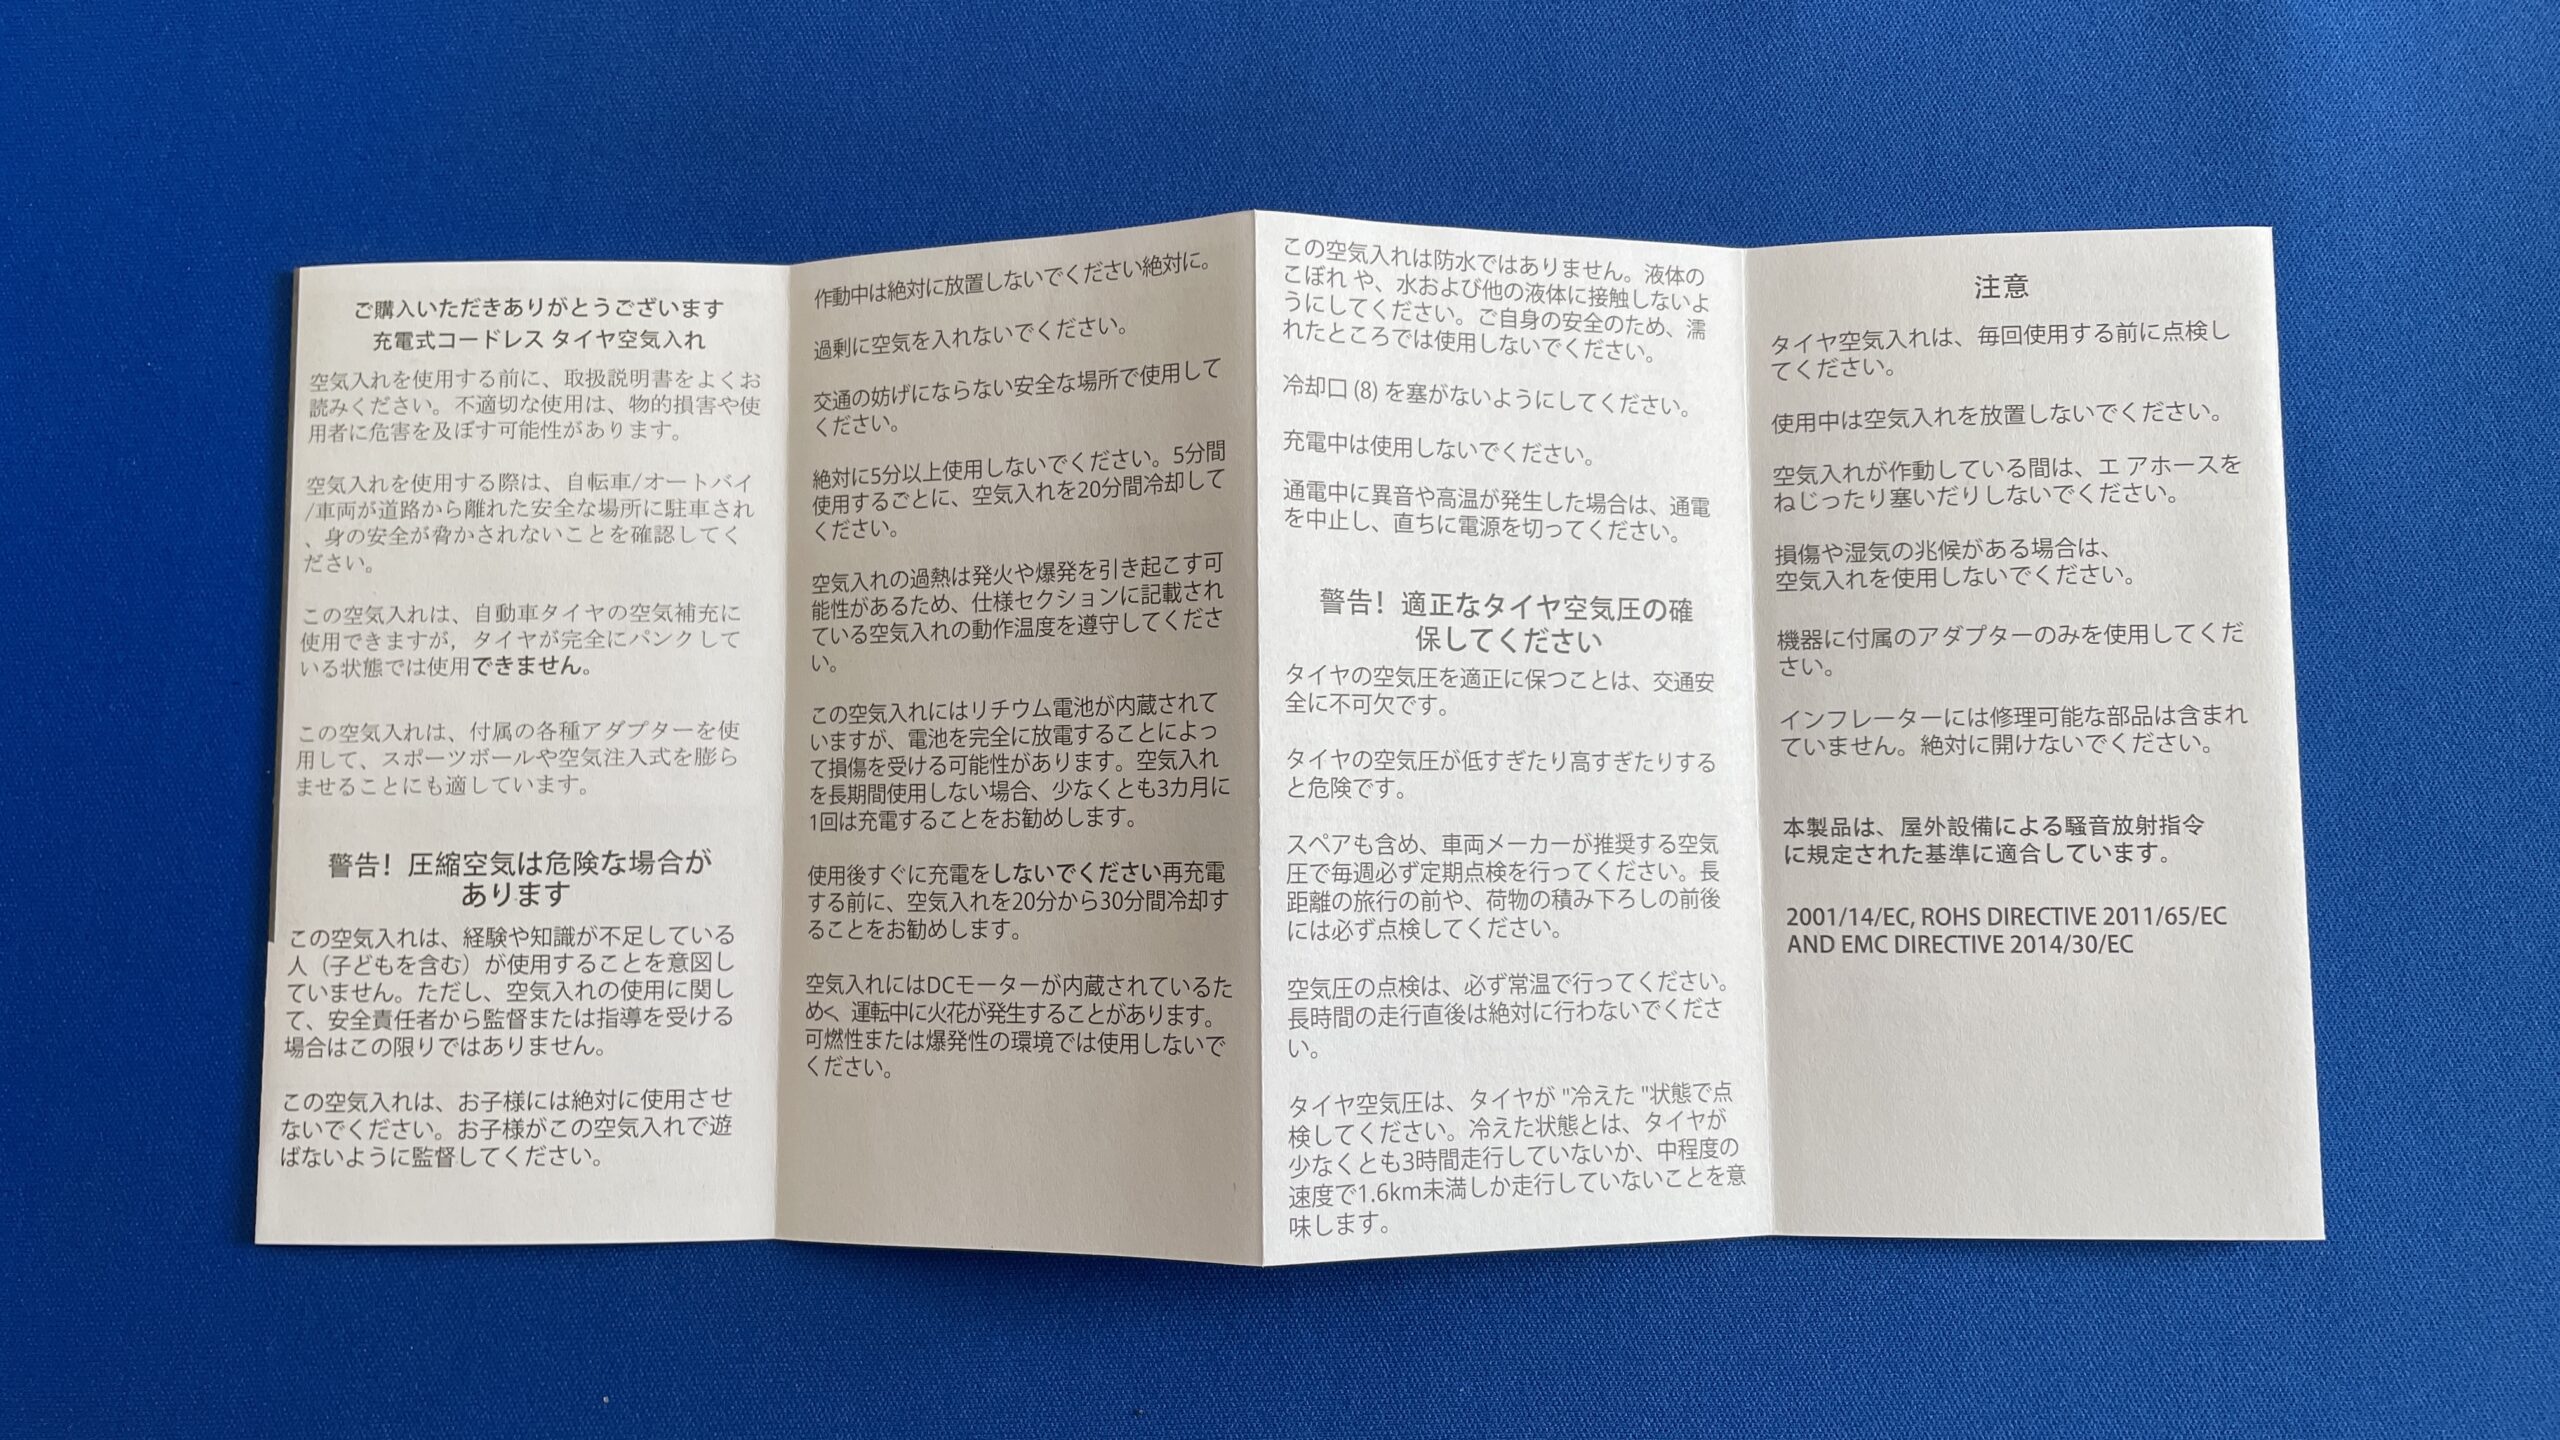 ご購入いただきありがとうございます
充電式コードレス タイヤ空気入れ
空気入れを使用する前に、取扱説明書をよくお
読みください。不適切な使用は、物的損害や使
用者に危害を及ぼす可能性があります。
空気入れを使用する際は、自転車/オートバイ
/車両が道路から離れた安全な場所に駐車され
、身の安全が脅かされないことを確認してく
ださい。
この空気入れは、自動車タイヤの空気補充に
使用できますが，タイヤが完全にパンクして
いる状態では使用できません。
この空気入れは、付属の各種アダプターを使
用して、スポーツボールや空気注入式を膨ら
ませることにも適しています。
警告！圧縮空気は危険な場合が
あります
この空気入れは、経験や知識が不足している
人（子どもを含む）が使用することを意図し
ていません。ただし、空気入れの使用に関し
て、安全責任者から監督または指導を受ける
場合はこの限りではありません。
この空気入れは、お子様には絶対に使用させ
ないでください。お子様がこの空気入れで遊
ばないように監督してください。
作動中は絶対に放置しないでください絶対に。
過剰に空気を入れないでください。
交通の妨げにならない安全な場所で使用して
ください。
絶対に5分以上使用しないでください。5分間
使用するごとに、空気入れを20分間冷却して
ください。
空気入れの過熱は発火や爆発を引き起こす可
能性があるため、仕様セクションに記載され
ている空気入れの動作温度を遵守してくださ
い。
この空気入れにはリチウム電池が内蔵されて
いますが、電池を完全に放電することによっ
て損傷を受ける可能性があります。空気入れ
を長期間使用しない場合、少なくとも3カ月に
1回は充電することをお勧めします。
使用後すぐに充電をしないでください再充電
する前に、空気入れを20分から30分間冷却す
ることをお勧めします。
空気入れにはDCモーターが内蔵されているた
め<、運転中に火花が発生することがあります。
可燃性または爆発性の環境では使用しないで
ください。
この空気入れは防水ではありません。液体の
こぼれ や、水および他の液体に接触しないよ
うにしてください。ご自身の安全のため、濡
れたところでは使用しないでください。
冷却口 (8) を塞がないようにしてください。
充電中は使用しないでください。
通電中に異音や高温が発生した場合は、通電
を中止し、直ちに電源を切ってください。
警告！適正なタイヤ空気圧の確
保してください
タイヤの空気圧を適正に保つことは、交通安
全に不可欠です。
タイヤの空気圧が低すぎたり高すぎたりする
と危険です。
スペアも含め、車両メーカーが推奨する空気
圧で毎週必ず定期点検を行ってください。長
距離の旅行の前や、荷物の積み下ろしの前後
には必ず点検してください。
空気圧の点検は、必ず常温で行ってください。
長時間の走行直後は絶対に行わないでくださ
い。
タイヤ空気圧は、タイヤが "冷えた "状態で点
検してください。冷えた状態とは、タイヤが
少なくとも3時間走行していないか、中程度の
速度で1.6km未満しか走行していないことを意
味します。
注意
タイヤ空気入れは、毎回使用する前に点検し
てください。
使用中は空気入れを放置しないでください。
空気入れが作動している間は、エ アホースを
ねじったり塞いだりしないでください。
損傷や湿気の兆候がある場合は、
空気入れを使用しないでください。
機器に付属のアダプターのみを使用してくだ
さい。
インフレーターには修理可能な部品は含まれ
ていません。絶対に開けないでください。
本製品は、屋外設備による騒音放射指令
に規定された基準に適合しています。
2001/14/EC, ROHS DIRECTIVE 2011/65/EC
AND EMC DIRECTIVE 2014/30/EC